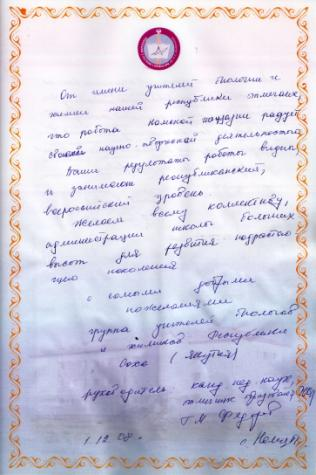 От имени учителей биологии и
химии нашей республики отмечаем,
что работа Намской гимназии радует
своей научно-творческой деятельностью
Ваши результаты работы видны
и занимают республиканский,
всероссийский уровень.
Желаем всему коллективу,
администрации школы больших
высот для развития подрастаю-
щего поколения
с самыми добрыми
пожеланиями
группа учителей биологов
и химиков Республики
Саха (Якутия)
руководитель: канд. пед. наук,
отличник
1.12.08г. с. Намцы